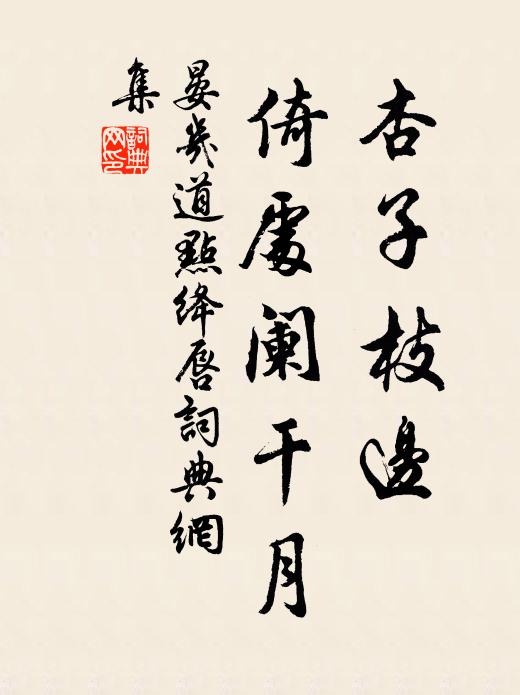 杏子枝邊
倚處闌干月
晏幾道點絳唇詞典網
集
詞典
网印